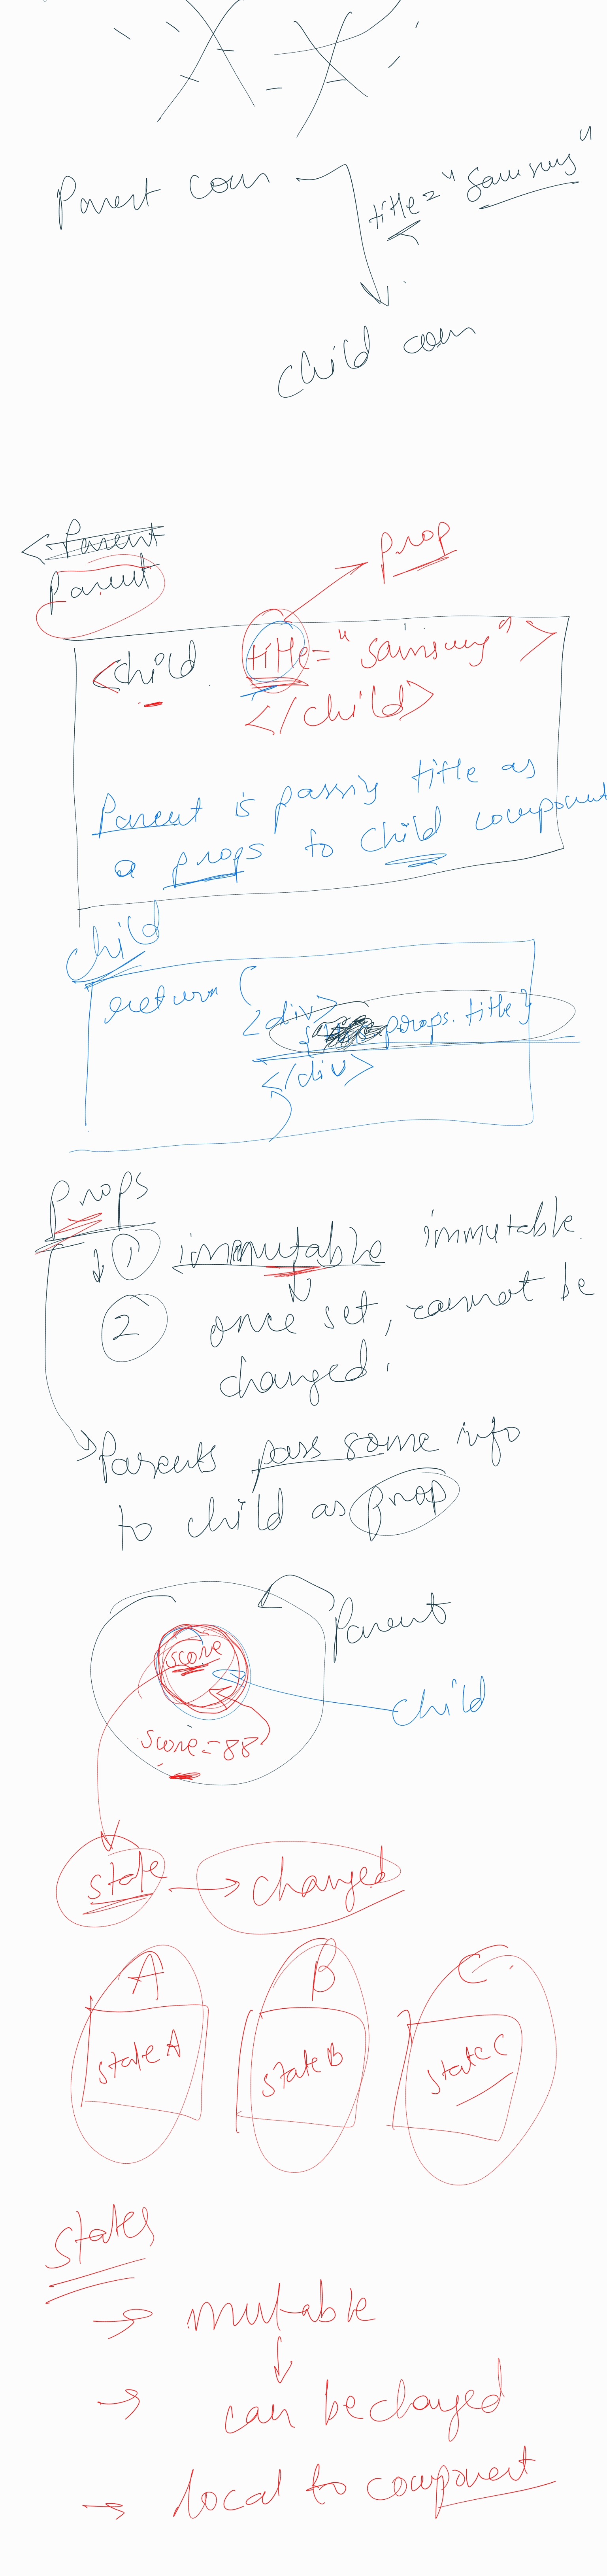 Parent com
title="Samsung"
child com
<Parent
Parent
prop
<child title="Samsung">
</child>
Parent is passing title as
a props to child component
child
return (
<div>
{props.title}
</div>
Props
1 immutable immutable.
2 once set, cannot be
changed.
Parents pass some info
to child as prop
Parent
score
child
score=88
state → changed
A B C
state A state B state C
states
→ mutable
↓
→ can be changed
→ local to component